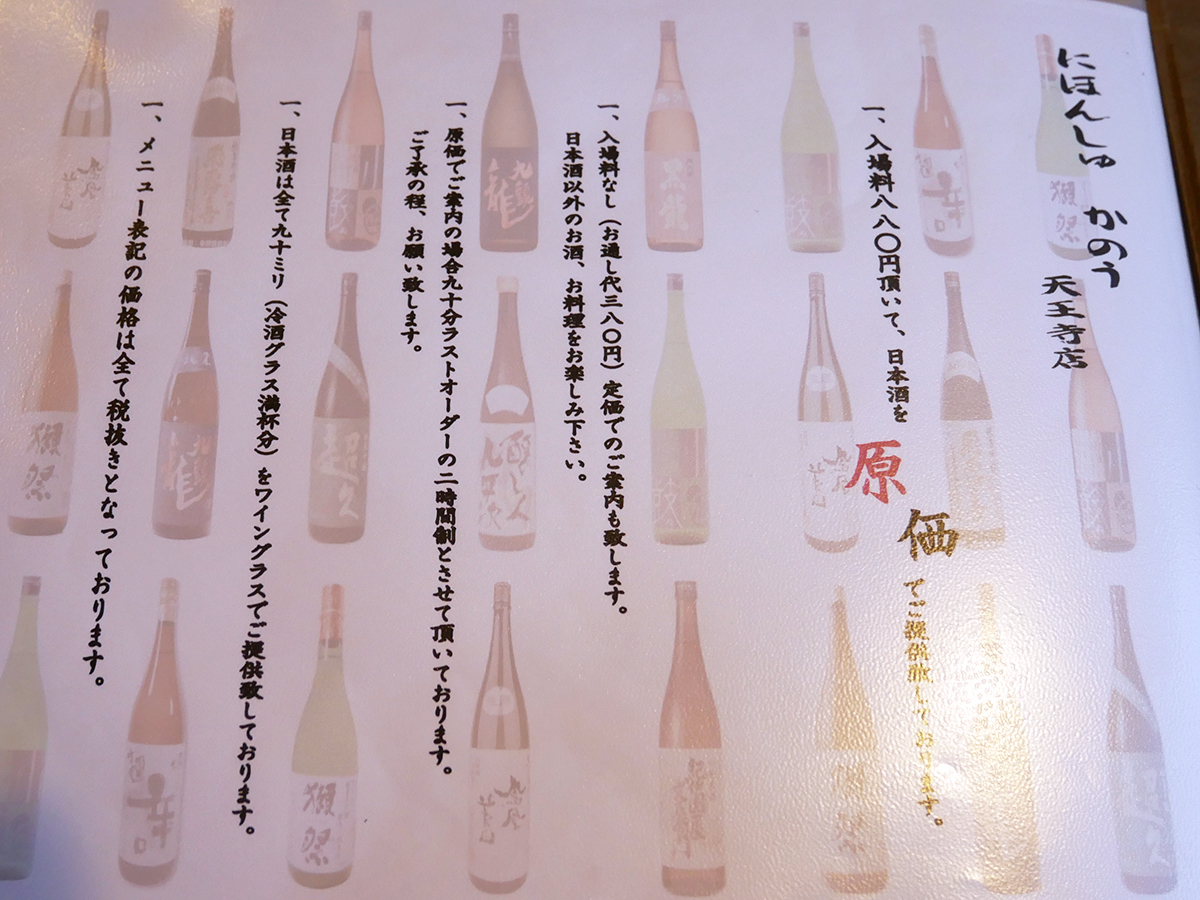 にほんしゅ かのう 天王寺店
一、入場料八八〇円頂いて、日本酒を原価でご提供致しております。
一、入場料なし（お通し代三八〇円）定価でのご案内も致します。
日本酒以外のお酒、お料理をお楽しみ下さい。
一、原価でご案内の場合九十分ラストオーダーの二時間制とさせて頂いております。
ご了承の程、お願い致します。
一、日本酒は全て九十ミリ（冷酒グラス満杯分）をワイングラスでご提供致しております。
一、メニュー表記の価格は全て税抜きとなっております。
獺祭
黒龍
九頭龍
獺祭
九頭龍
超久
獺祭
獺祭